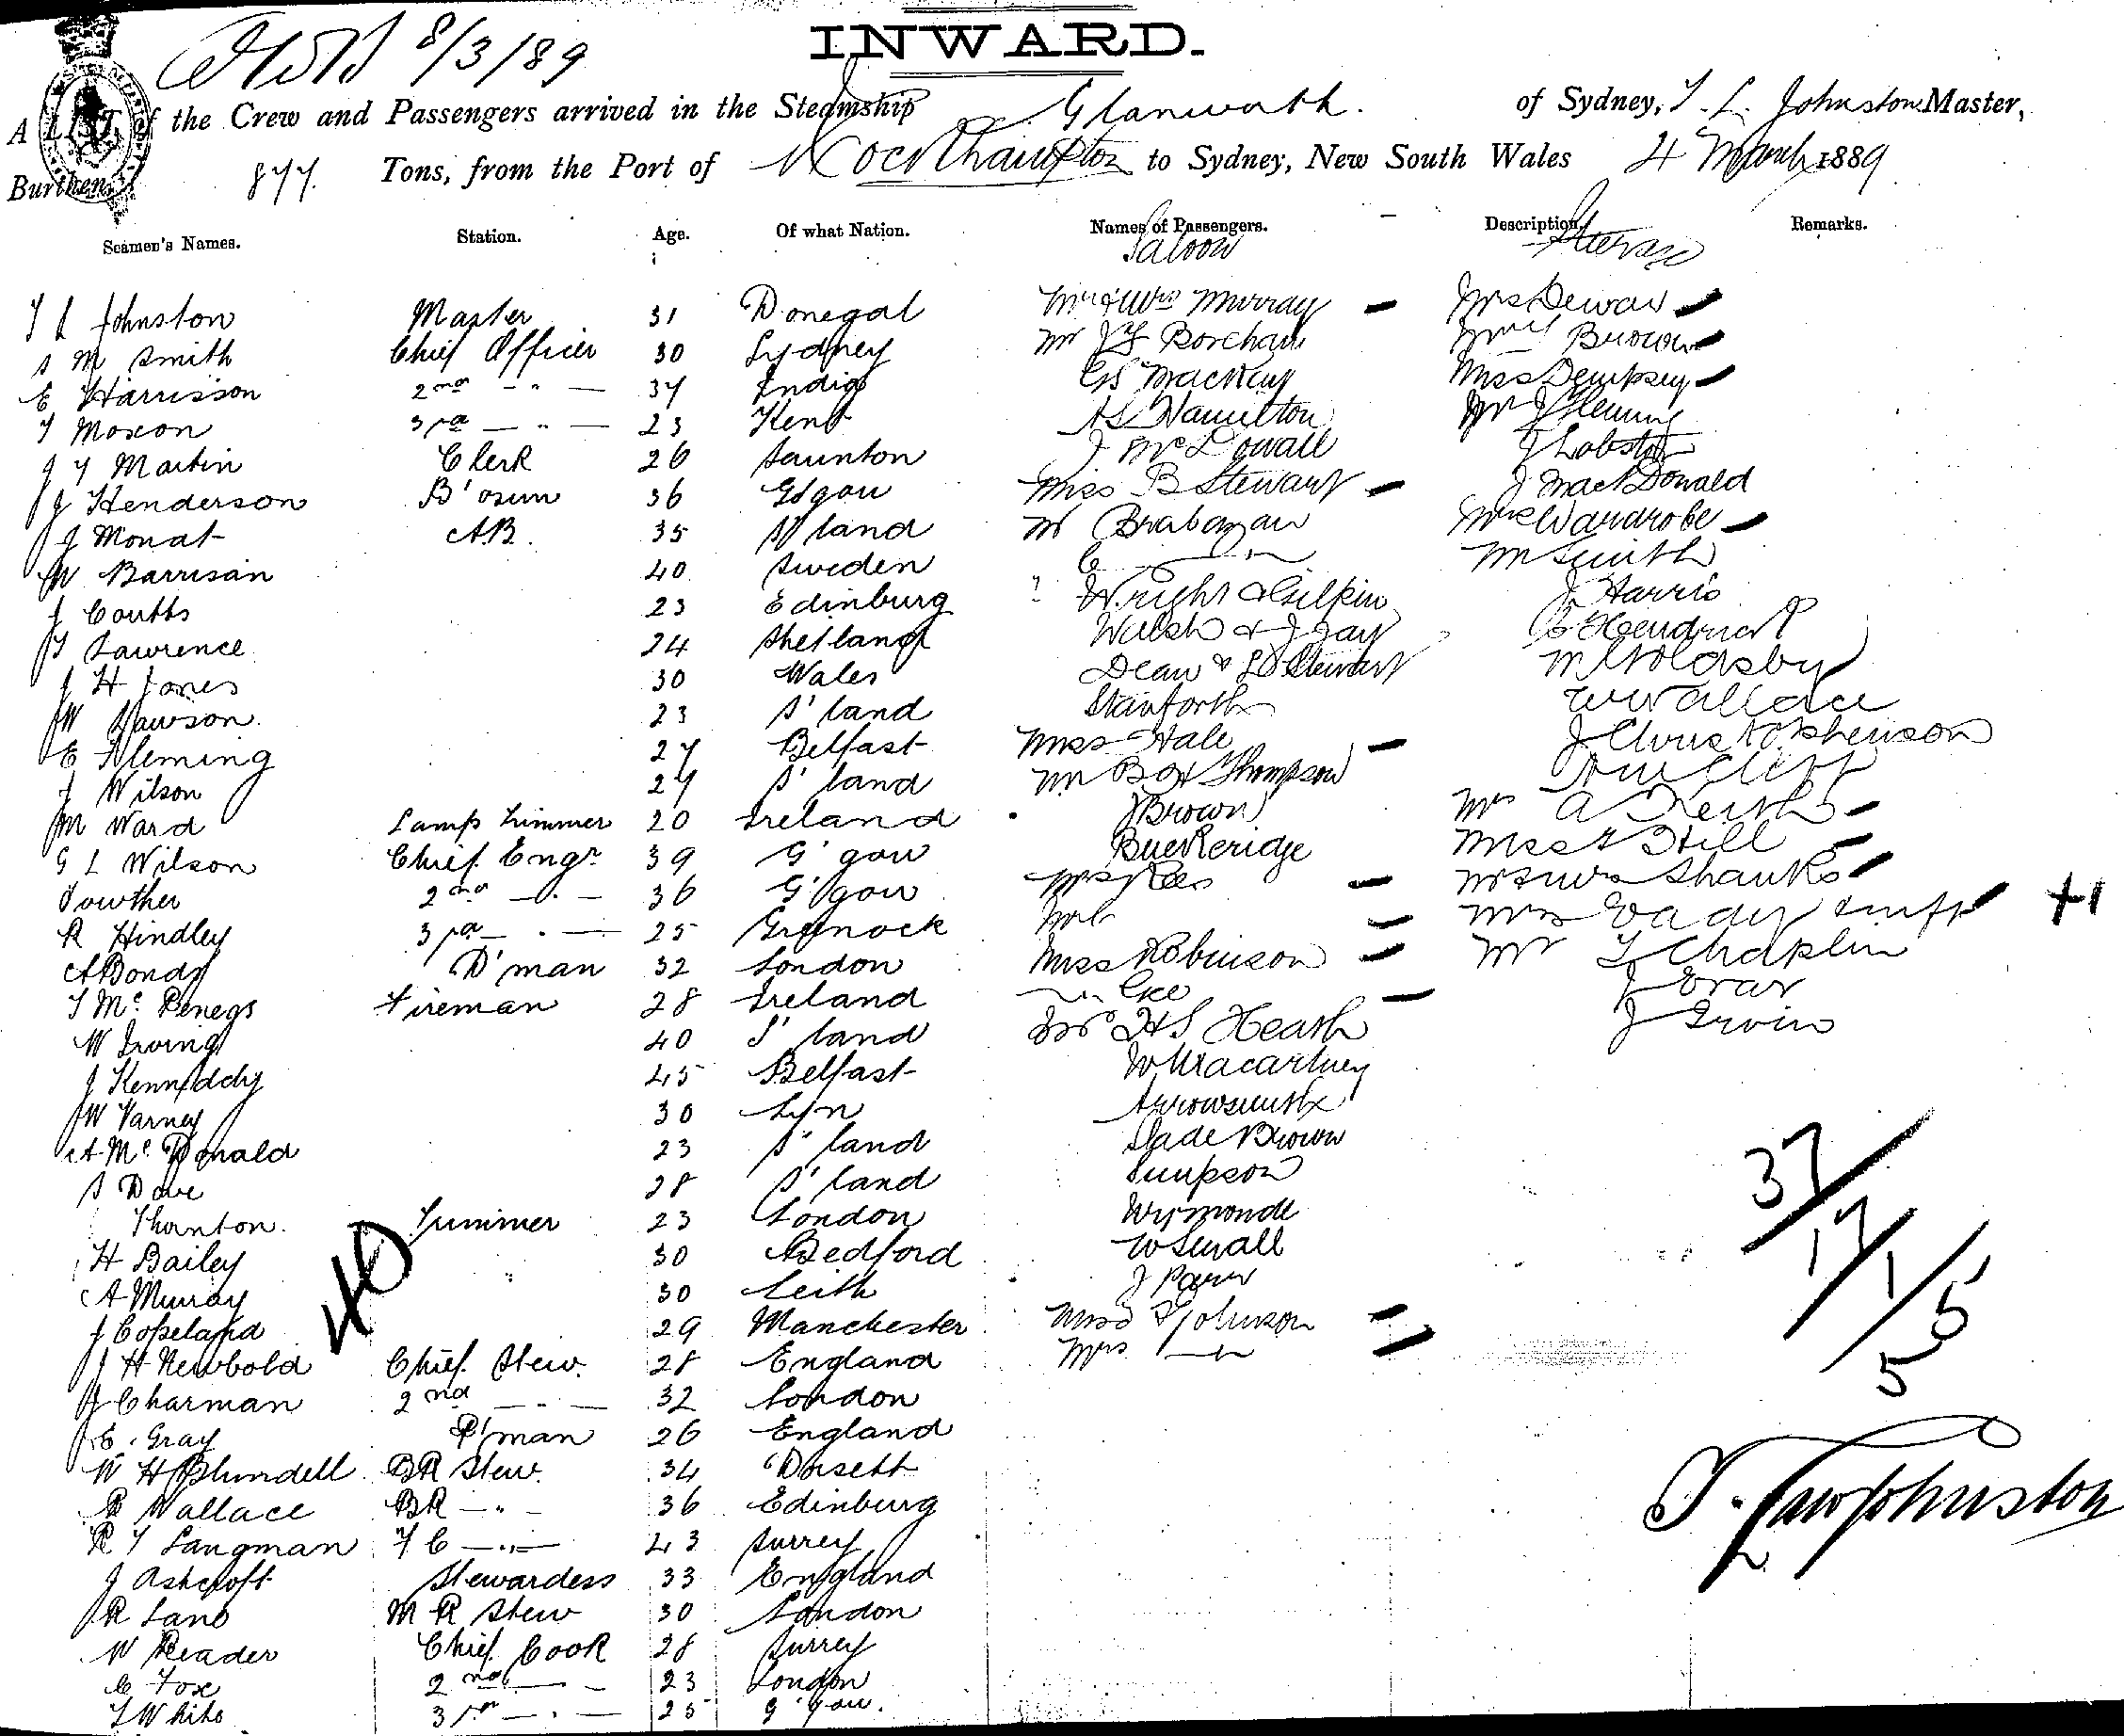 8/3/89
INWARD.
A LIST of the Crew and Passengers arrived in the Steamship Glanworth. of Sydney, T. L. Johnston Master,
Burthen 877. Tons, from the Port of Rockhampton to Sydney, New South Wales 4 March 1889
Seamen's Names. Station. Age. Of what Nation. Names of Passengers. Description. Remarks.
Saloon Steerage
T L Johnston Master 31 Donegal Mr & Mrs Murray Mrs Dewar
S M Smith Chief Officer 30 Sydney Mr Boreham Brown
E Harrisson 2nd - " - 37 India MacKay Miss Dempsey
T Moxon 3rd - " - 23 Kent Hamilton Mr J Fleming
J Y Martin Clerk 26 Taunton J McDowall Lobston
J Henderson B'osun 36 G'gow Miss B Stewart J MacDonald
J Monat A.B. 35 S'land Mr Brabazan Mrs Wardrobe
W Barrisan 40 Sweden C - " - Mr Smith
J Coutts 23 Edinburg Wright & Gilpin J Harris
T Lawrence 24 Shetland Walsh & J Gay
J H Jones 30 Wales Dean & Stewart Goldsby
W Dawson. 23 S'land Stanforth Wallace
E Fleming 27 Belfast Miss Hale J Christophenson
J Wilson 27 S'land Mr Thompson
M Ward Lamp Trimmer 20 Ireland J Brown Mr A Keith
G L Wilson Chief Engr 39 G'gow Buckeridge Miss Hill
Fowther 2nd - " - 36 G'gow Mrs Rees Mr & Mrs Shanks
R Hindley 3rd - " - 25 Grenock Mrs Eady & inft +1
A Bonds D'man 32 London Miss Robinson Mr Chaplin
T Mc Penegs Fireman 28 Ireland - " - J
W Irving 40 S'land H S Heath J Irvin
J Kenneddy 45 Belfast W Macartney
W Varney 30 Lyn Arrowsmith
A Mc Donald 23 S'land Slade Brown
S Dove 28 S'land Simpson
Thornton. Trimmer 23 London Wymonde
H Bailey 30 Bedford W Small
A Murray 30 Leith J
J Copeland 29 Manchester Miss Johnson
J H Newbold Chief Stew. 28 England Mrs - " -
J Charman 2nd - " - 32 London
E. Gray P'man 26 England
W H Blundell BR Stew. 34 Dorsett
R Wallace BR - " - 36 Edinburg
R T Langman F C - " - 43 Surrey
J Ashcroft Stewardess 33 England
R Lane M R Stew 30 London
W Reader Chief Cook 28 Surrey
C Fox 2nd - " - 23 London
T White 3rd - " - 25 G'gow.
40
37/17/1/5
5
T. Law Johnston